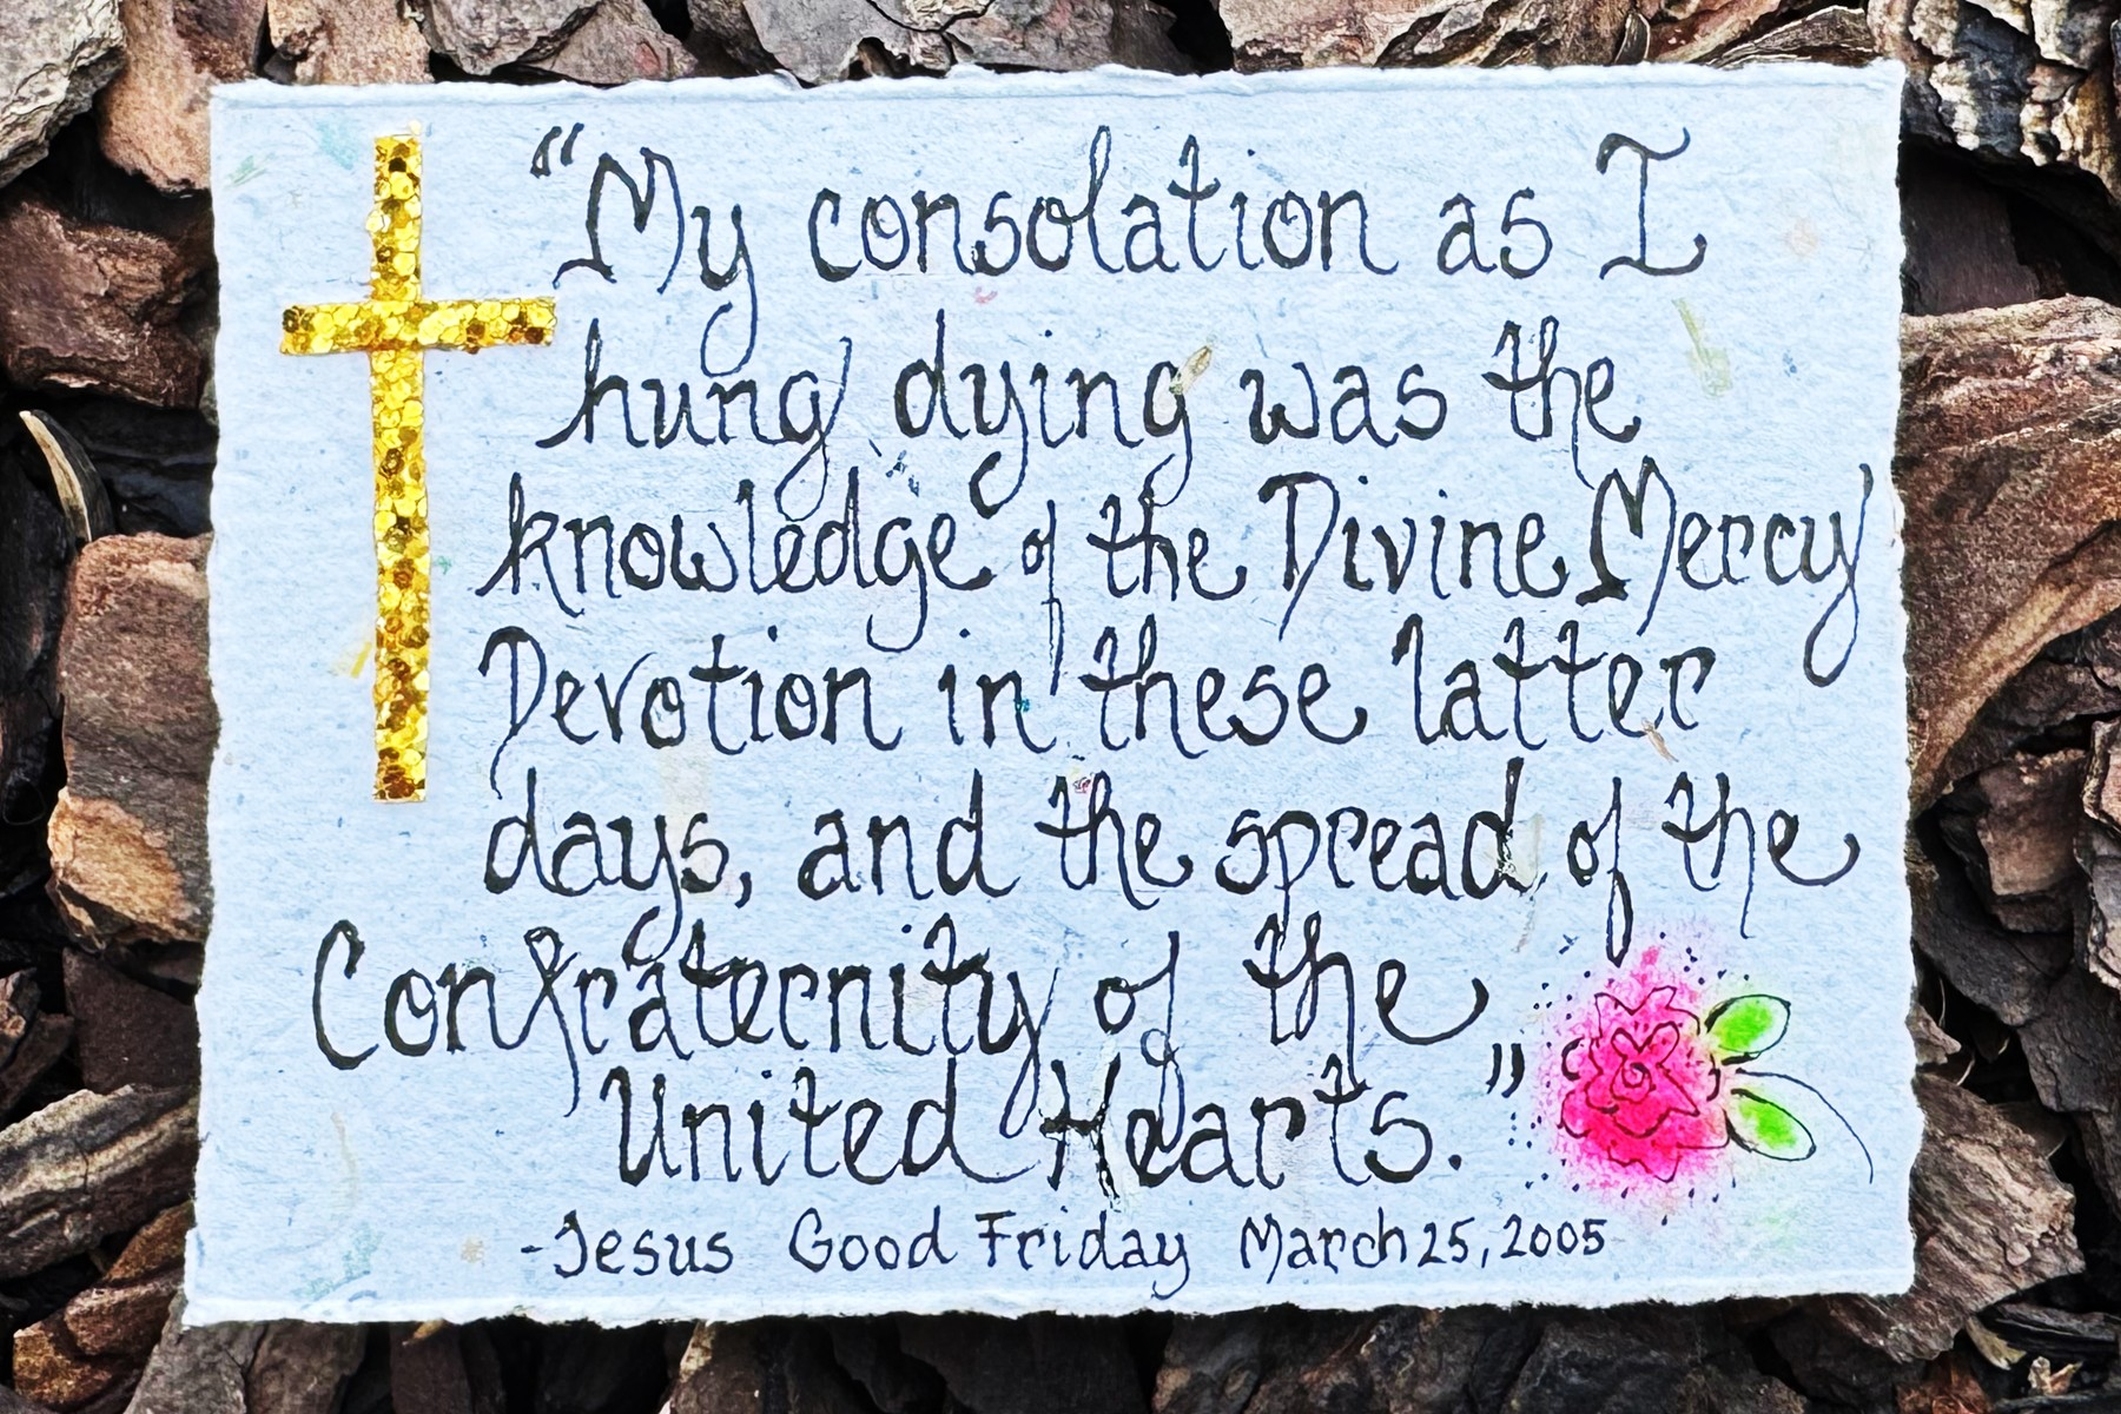 "My consolation as I
hung dying was the
knowledge of the Divine Mercy
Devotion in these latter
days, and the spread of the
Confraternity of the
United Hearts."
-Jesus Good Friday March 25, 2005